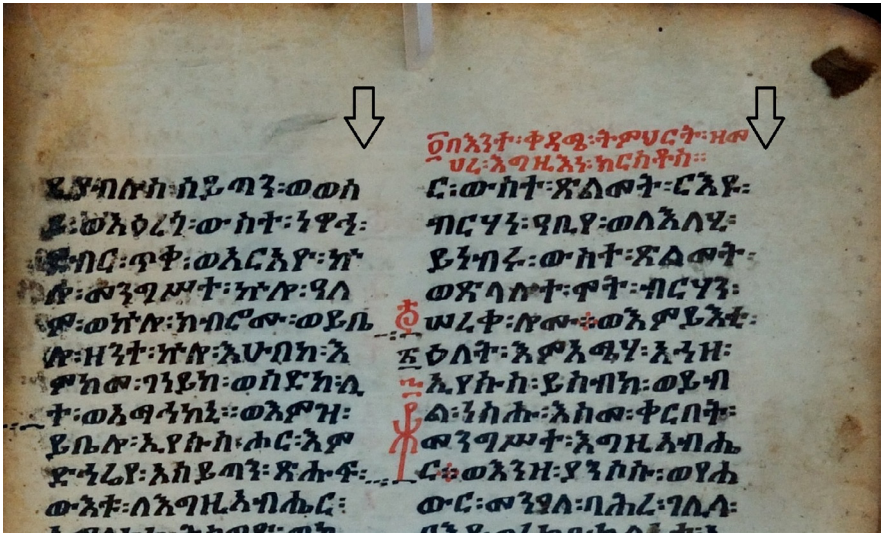 ዲያብሎስ፡ሰይጣን፡ወወስ
ዶ፡ወአዕረጎ፡ውስተ፡ነዋኅ፡
ደብር፡ጥቀ፡ወአርአዮ፡ኵ
ሎ፡መንግሥተ፡ኵሉ፡ዓለ
ም፡ወኵሎ፡ክብሮሙ፡ወይቤ
ሎ፡ዘንተ፡ኵሎ፡እሁበከ፡እ
ምከመ፡ገነይከ፡ወሰገድከ፡ሊ
ተ፡ወአማኅከኒ።ወእምዝ፡
ይቤሎ፡ኢየሱስ፡ሑር፡እም
ድኅሬየ፡አሰይጣን፡ጽሑፍ፡
ውእቱ፡ለእግዚአብሔር፡
፬በእንተ፡ቀዳሜ፡ትምህርት፡ዘመ
ሀረ፡እግዚእነ፡ክርስቶስ።
ር፡ውስተ፡ጽልመት፡ርእዩ፡
ብርሃነ፡ዓቢየ፡ወለእለሂ፡
ይነብሩ፡ውስተ፡ጽልመት፡
ወጽላሎተ፡ሞት፡ብርሃን፡
ሠረቀ፡ሎሙ፡ወእምይእቲ፡
ዕለት፡እምአሜሃ፡አኀዘ፡
ኢየሱስ፡ይስብክ፡ወይብ
ል፡ነስሑ፡እስመ፡ቀርበት፡
መንግሥተ፡እግዚአብሔ
ር፡ወእንዘ፡ያንሶሱ፡ወየሐ
ውር፡መንገለ፡ባሕረ፡ገሊላ፡